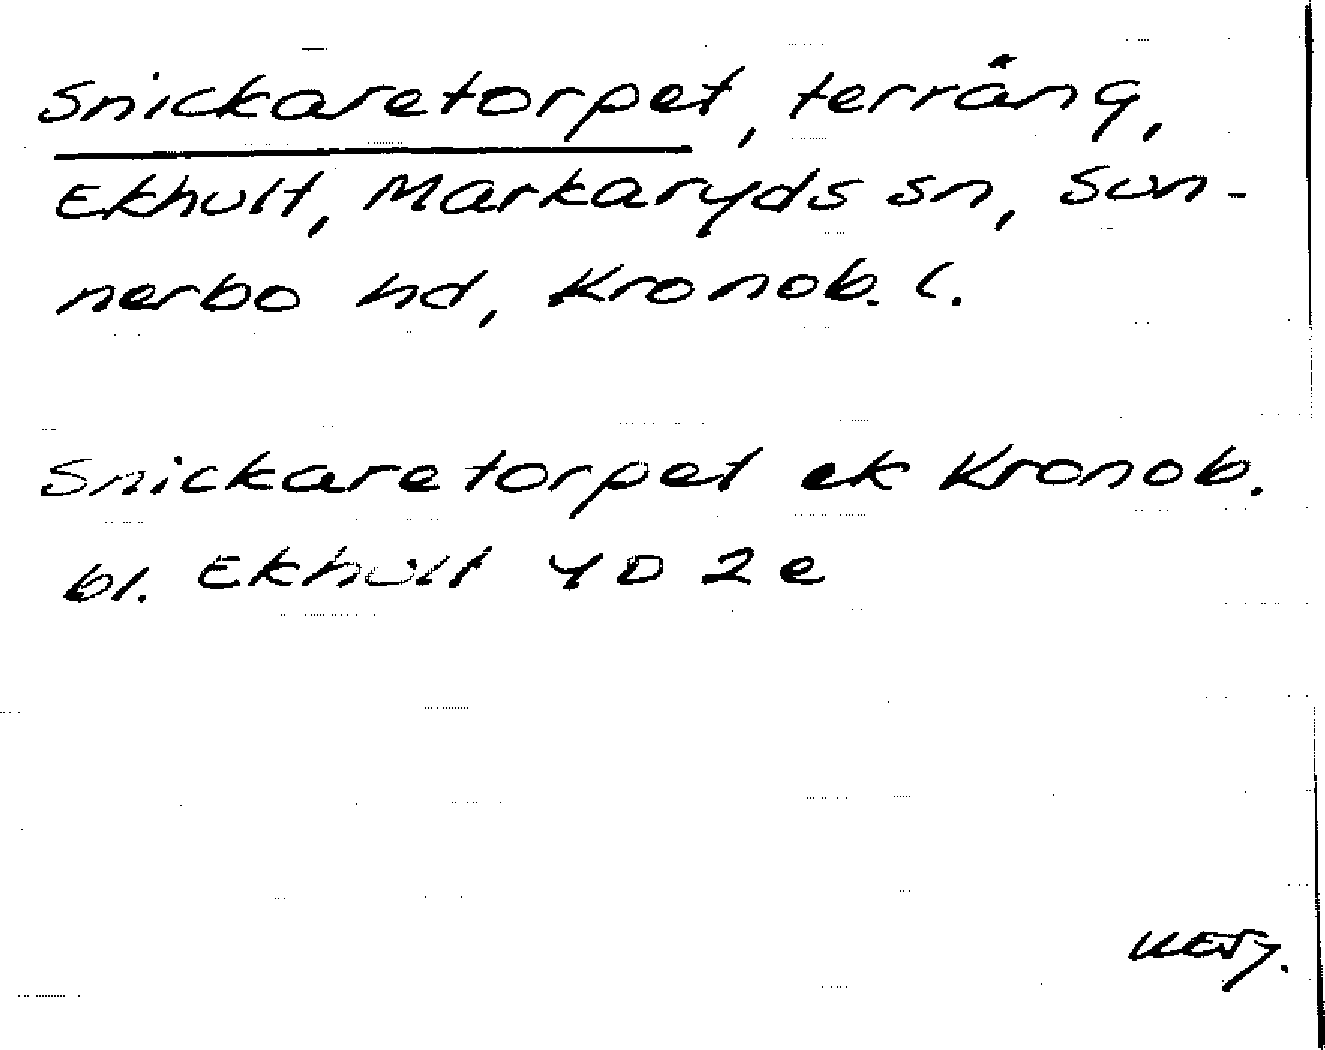 Snickaretorpet, terräng,
Ekhult, Markaryds sn, Sun-
nerbo hd, Kronob. l.
Snickaretorpet ek Kronob.
bl. Ekhult 4D 2e